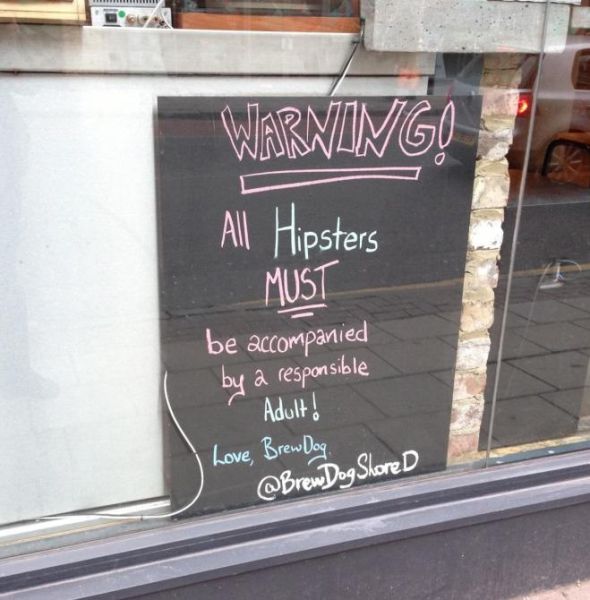 WARNING!
All Hipsters
MUST
be accompanied
by a responsible
Adult!
Love, BrewDog.
@BrewDogShoreD